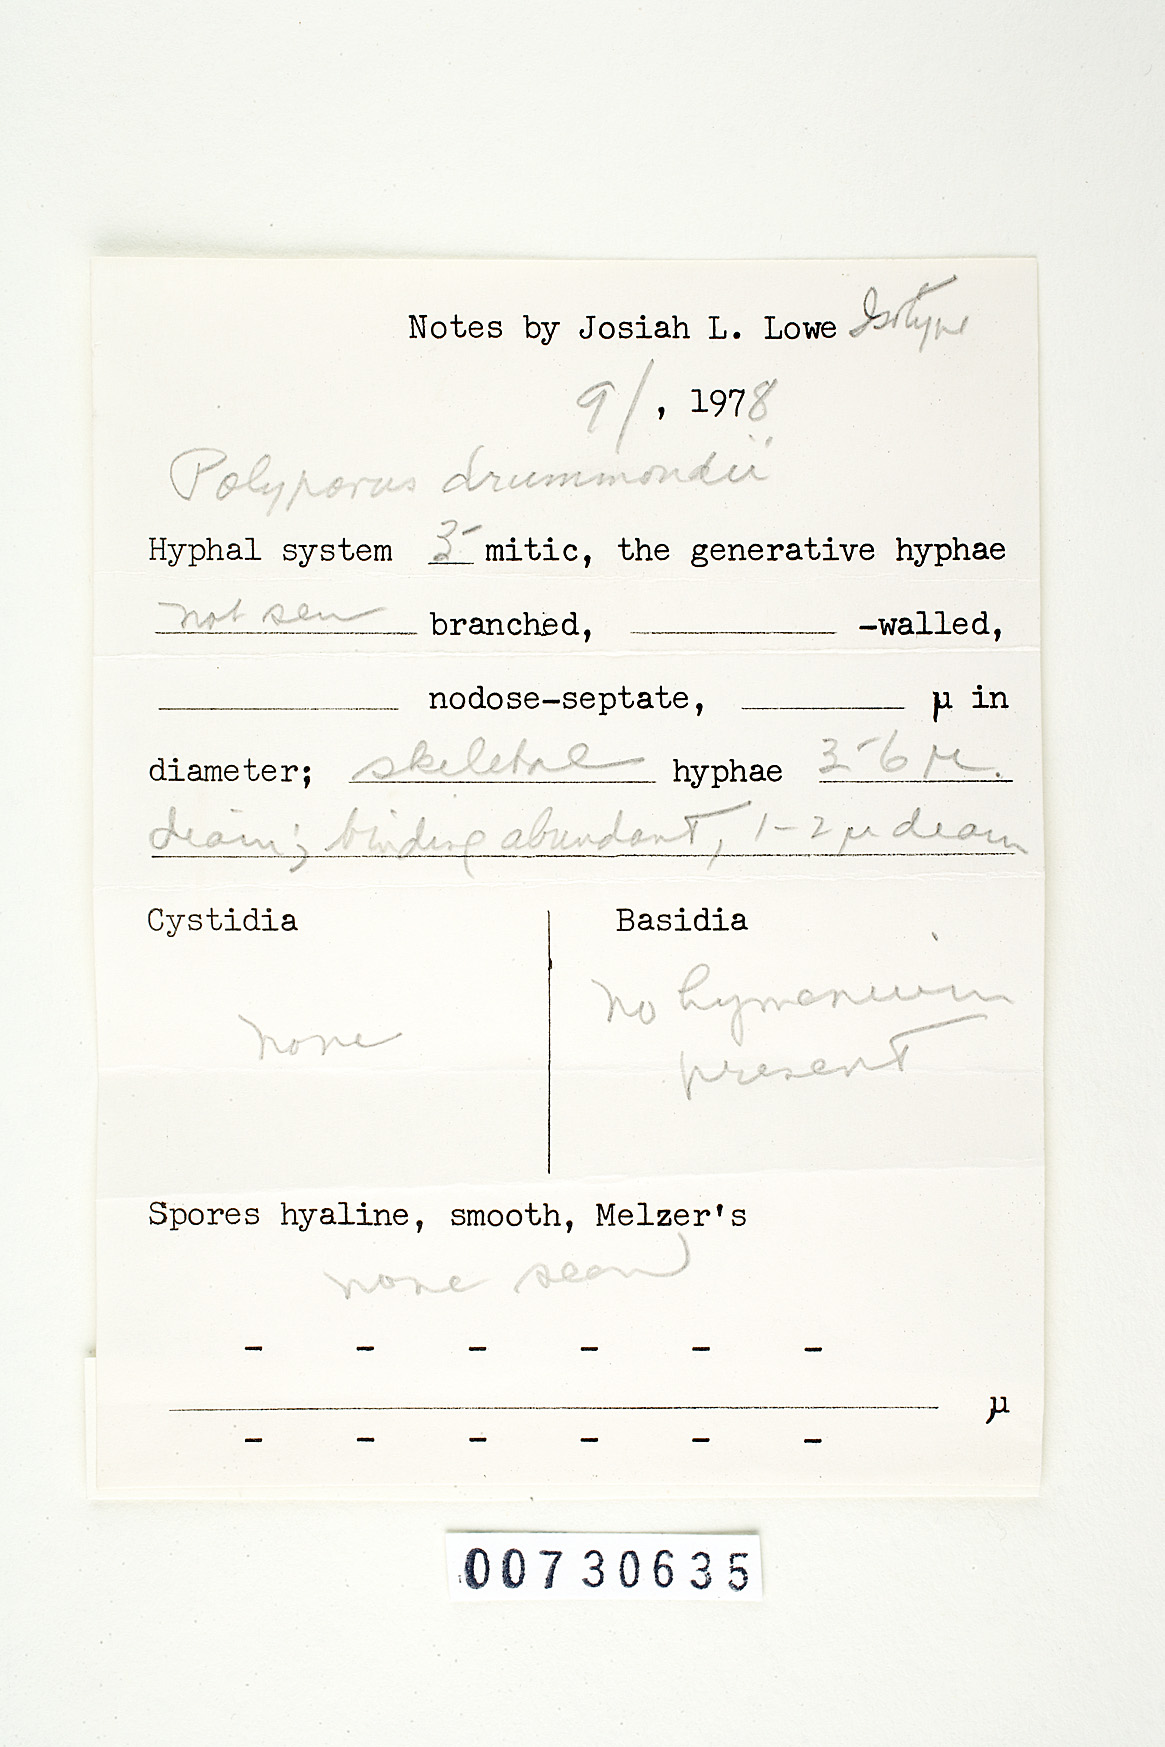 Notes by Josiah L. Lowe Isotype
9/ , 1978
Polyporus drummondii
Hyphal system 3- mitic, the generative hyphae
not seen branched, -walled,
nodose-septate, μ in
diameter; skeletal hyphae 3-6 μ.
diam; binding abundant, 1-2 μ diam
Cystidia Basidia
none no hymenium
present
Spores hyaline, smooth, Melzer's
none seen
- - - - - -
μ
- - - - - -
00730635